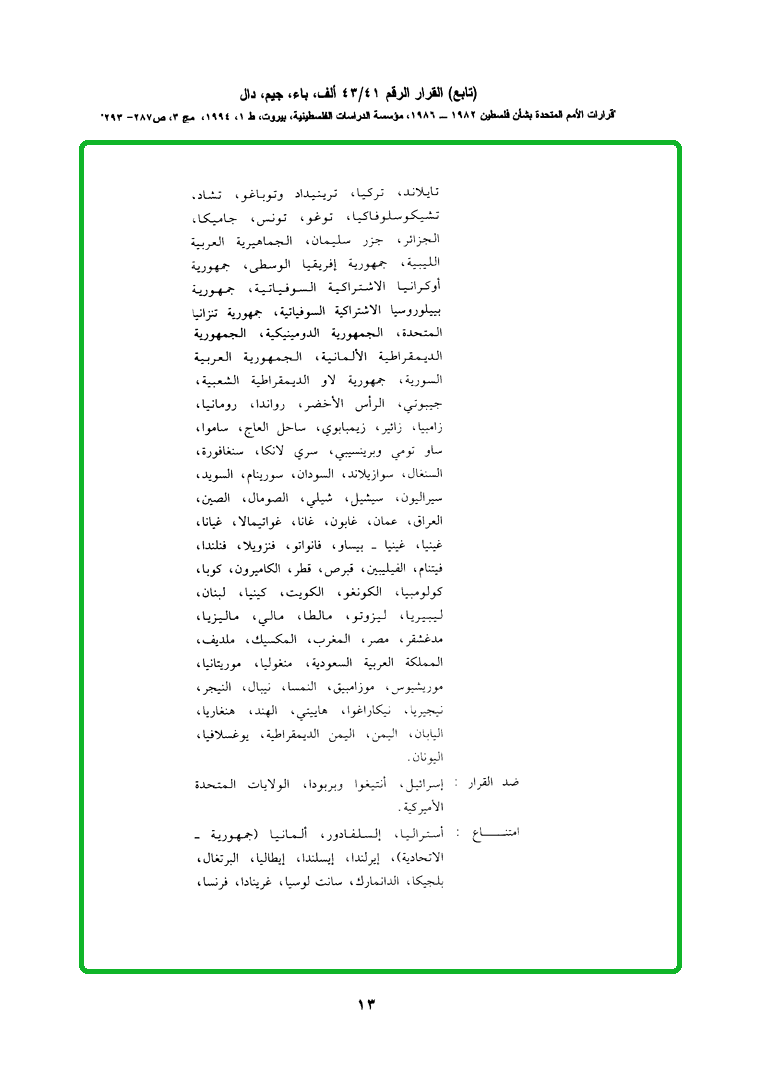 (تابع) القرار الرقم ٤٣/٤١ ألف، باء، جيم، دال
"قرارات الأمم المتحدة بشأن فلسطين ١٩٨٢ ــ ١٩٨٦، مؤسسة الدراسات الفلسطينية، بيروت، ط ١، ١٩٩٤، مج ٣، ص٢٨٧- ٢٩٣"
تايلاند، تركيا، ترينيداد وتوباغو، تشاد،
تشيكوسلوفاكيا، توغو، تونس، جاميكا،
الجزائر، جزر سليمان، الجماهيرية العربية
الليبية، جمهورية إفريقيا الوسطى، جمهورية
أوكرانيا الاشتراكية السوفياتية، جمهورية
بييلوروسيا الاشتراكية السوفياتية، جمهورية تنزانيا
المتحدة، الجمهورية الدومينيكية، الجمهورية
الديمقراطية الألمانية، الجمهورية العربية
السورية، جمهورية لاو الديمقراطية الشعبية،
جيبوتي، الرأس الأخضر، رواندا، رومانيا،
زامبيا، زائير، زيمبابوي، ساحل العاج، ساموا،
ساو تومي وبرينسيبي، سري لانكا، سنغافورة،
السنغال، سوازيلاند، السودان، سورينام، السويد،
سيراليون، سيشيل، شيلي، الصومال، الصين،
العراق، عمان، غابون، غانا، غواتيمالا، غيانا،
غينيا، غينيا ـ بيساو، فانواتو، فنزويلا، فنلندا،
فيتنام، الفيليبين، قبرص، قطر، الكاميرون، كوبا،
كولومبيا، الكونغو، الكويت، كينيا، لبنان،
ليبيريا، ليزوتو، مالطا، مالي، ماليزيا،
مدغشقر، مصر، المغرب، المكسيك، ملديف،
المملكة العربية السعودية، منغوليا، موريتانيا،
موريشيوس، موزامبيق، النمسا، نيبال، النيجر،
نيجيريا، نيكاراغوا، هاييتي، الهند، هنغاريا،
اليابان، اليمن، اليمن الديمقراطية، يوغسلافيا،
اليونان.
ضد القرار : إسرائيل، أنتيغوا وبربودا، الولايات المتحدة
الأميركية.
امتنـــــاع : أستراليا، إلسلفادور، ألمانيا (جمهورية ـ
الاتحادية)، إيرلندا، إيسلندا، إيطاليا، البرتغال،
بلجيكا، الدانمارك، سانت لوسيا، غرينادا، فرنسا،
١٣